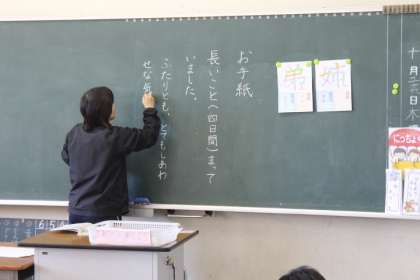 十月
日木
姉
弟
お手紙
長いこと(四日間)まって
いました。
ふたりとも、とてもしあわ
せな気
にっちょく